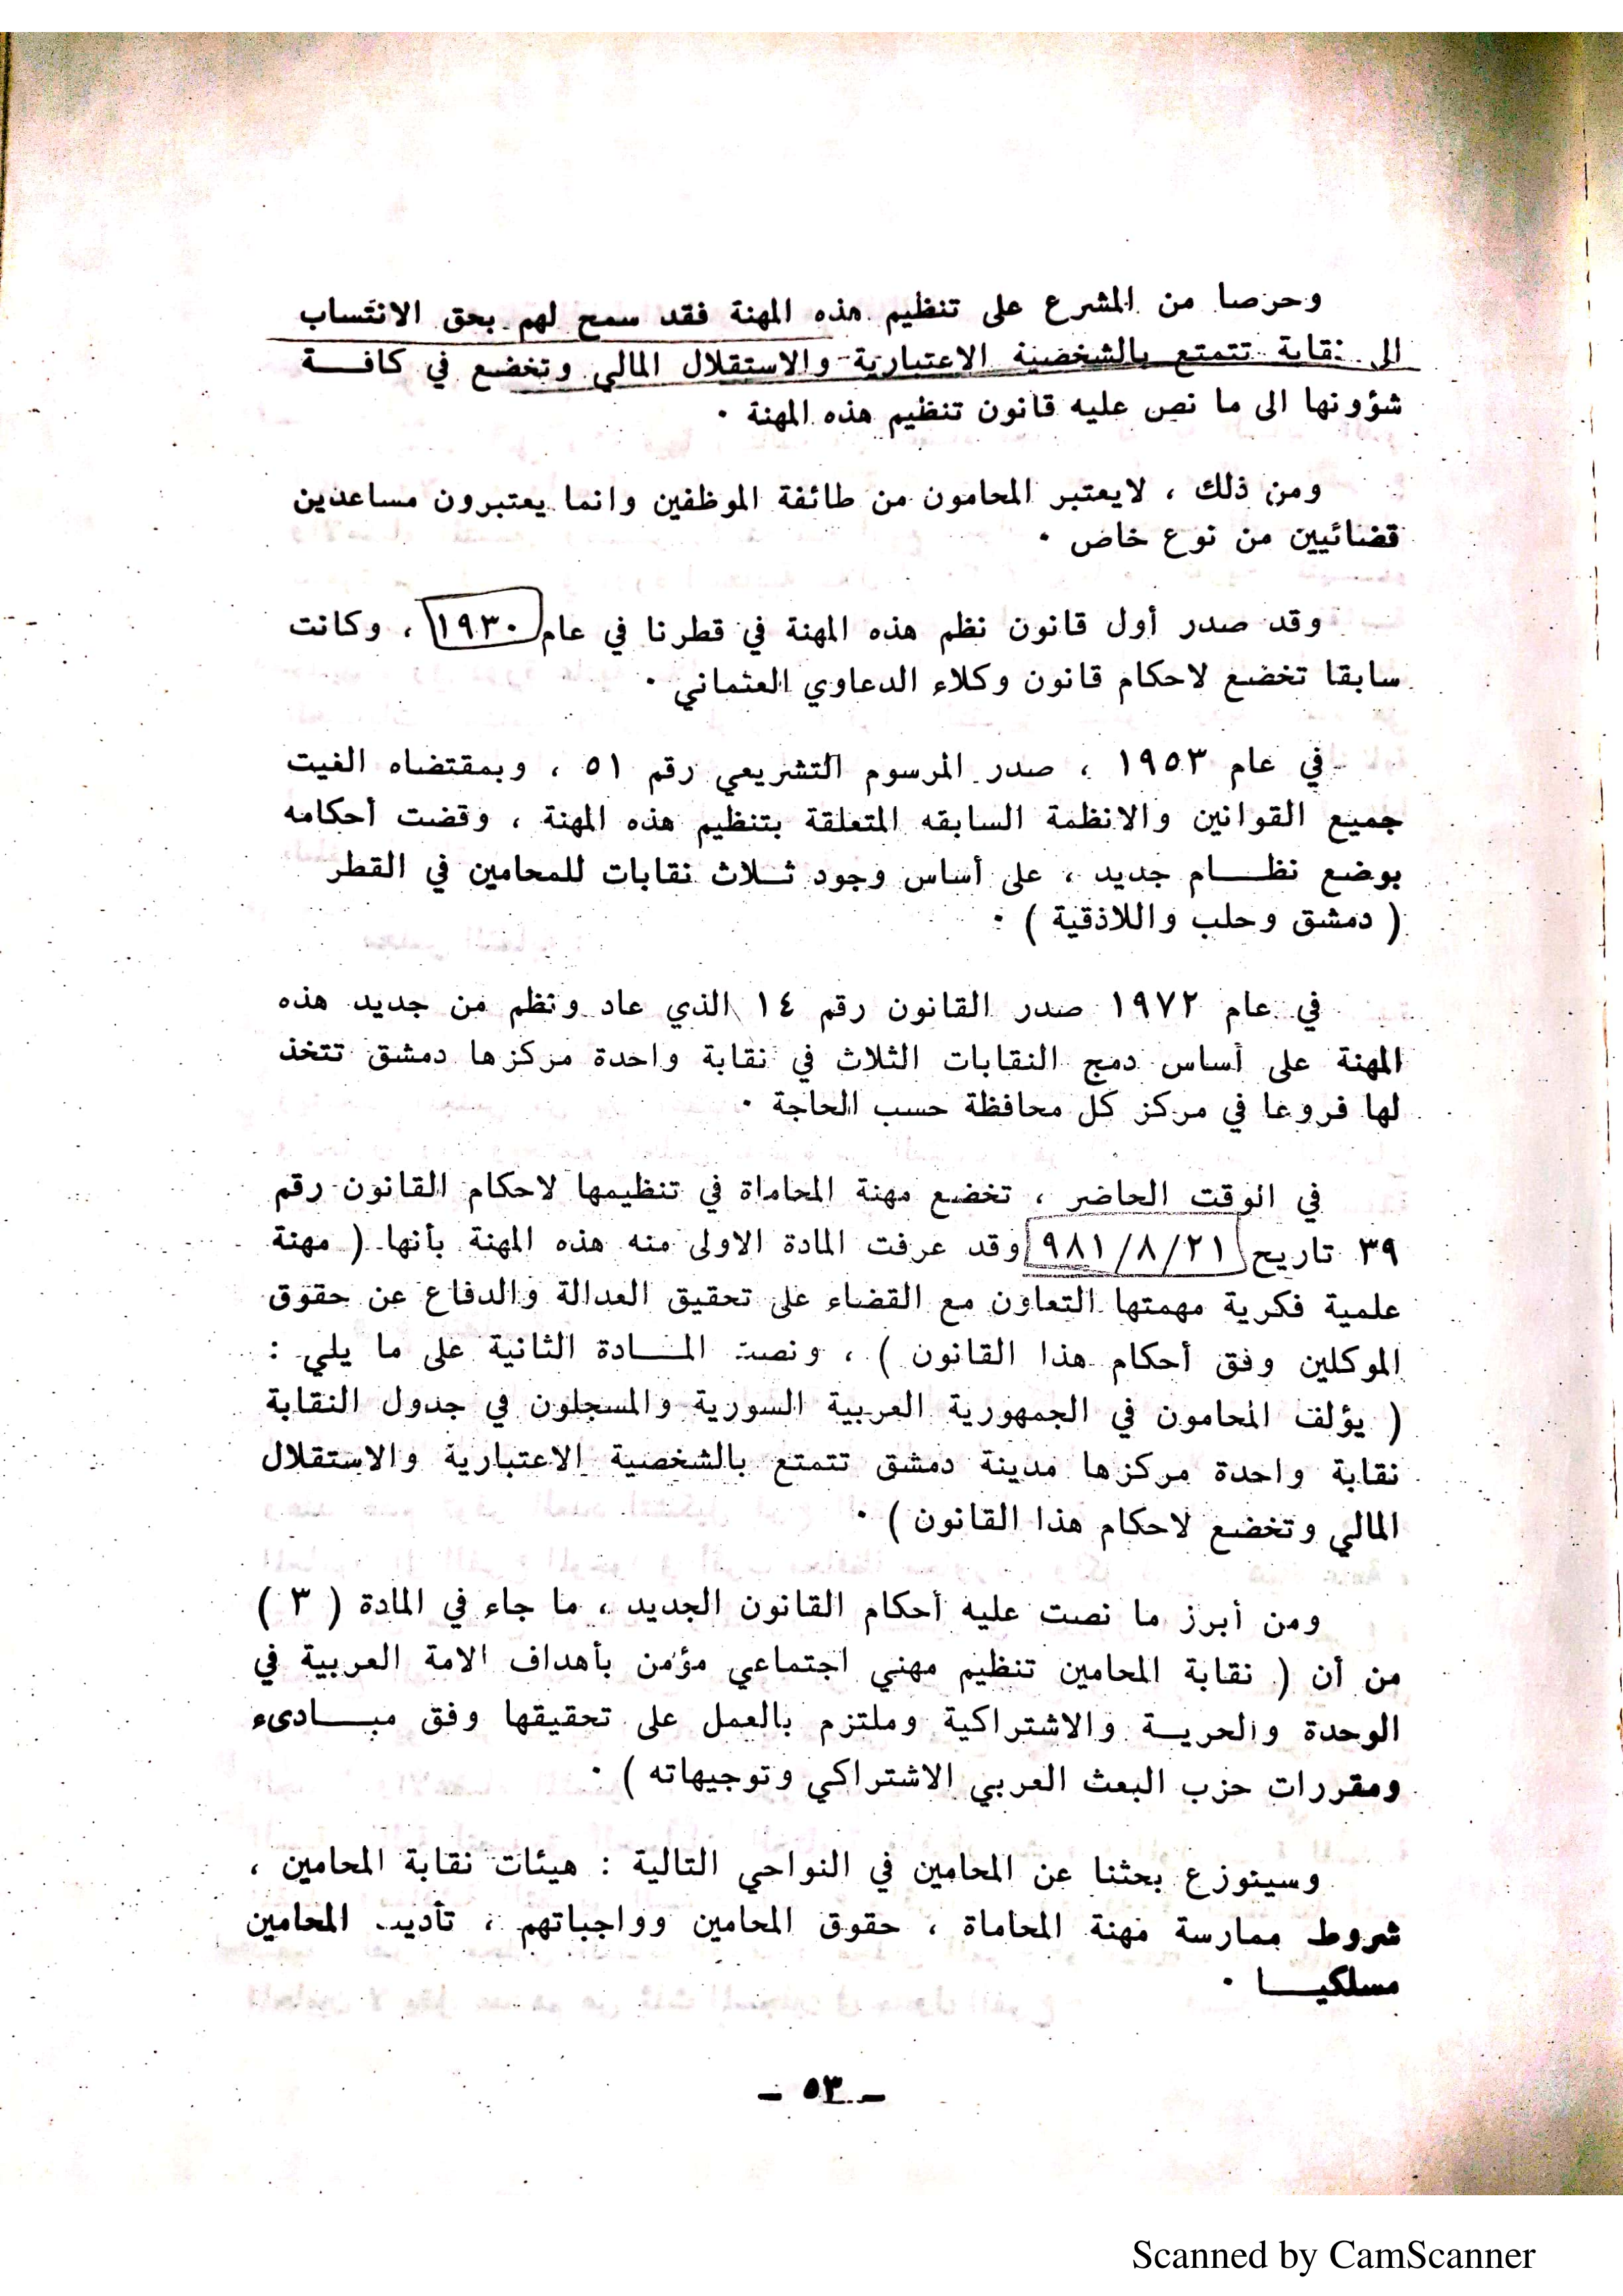 وحرصا من المشرع على تنظيم هذه المهنة فقد سمح لهم بحق الانتساب
الى نقابة تتمتع بالشخصية الاعتبارية والاستقلال المالي وتخضع في كافــة
شؤونها الى ما نص عليه قانون تنظيم هذه المهنة ٠
ومن ذلك ، لايعتبر المحامون من طائفة الموظفين وانما يعتبرون مساعدين
قضائيين من نوع خاص ٠
وقد صدر أول قانون نظم هذه المهنة في قطرنا في عام ١٩٣٠ ، وكانت
سابقا تخضع لاحكام قانون وكلاء الدعاوي العثماني ٠
في عام ١٩٥٣ ، صدر المرسوم التشريعي رقم ٥١ ، وبمقتضاه الغيت
جميع القوانين والانظمة السابقه المتعلقة بتنظيم هذه المهنة ، وقضت أحكامه
بوضع نظــام جديد ، على أساس وجود ثــلاث نقابات للمحامين في القطر
( دمشق وحلب واللاذقية ) ٠
في عام ١٩٧٢ صدر القانون رقم ١٤ الذي عاد ونظم من جديد هذه
المهنة على أساس دمج النقابات الثلاث في نقابة واحدة مركزها دمشق تتخذ
لها فروعا في مركز كل محافظة حسب الحاجة ٠
في الوقت الحاضر ، تخضع مهنة المحاماة في تنظيمها لاحكام القانون رقم
٣٩ تاريخ ٩٨١/٨/٢١ وقد عرفت المادة الاولى منه هذه المهنة بأنها ( مهنة
علمية فكرية مهمتها التعاون مع القضاء على تحقيق العدالة والدفاع عن حقوق
الموكلين وفق أحكام هذا القانون ) ، ونصت المــادة الثانية على ما يلي :
( يؤلف المحامون في الجمهورية العربية السورية والمسجلون في جدول النقابة
نقابة واحدة مركزها مدينة دمشق تتمتع بالشخصية الاعتبارية والاستقلال
المالي وتخضع لاحكام هذا القانون ) ٠
ومن أبرز ما نصت عليه أحكام القانون الجديد ، ما جاء في المادة ( ٣ )
من أن ( نقابة المحامين تنظيم مهني اجتماعي مؤمن بأهداف الامة العربية في
الوحدة والحريــة والاشتراكية وملتزم بالعمل على تحقيقها وفق مبــادىء
ومقررات حزب البعث العربي الاشتراكي وتوجيهاته ) ٠
وسيتوزع بحثنا عن المحامين في النواحي التالية : هيئات نقابة المحامين ،
شروط ممارسة مهنة المحاماة ، حقوق المحامين وواجباتهم ، تأديب المحامين
مسلكيــا ٠
ـ ٥٣ ـ
Scanned by CamScanner